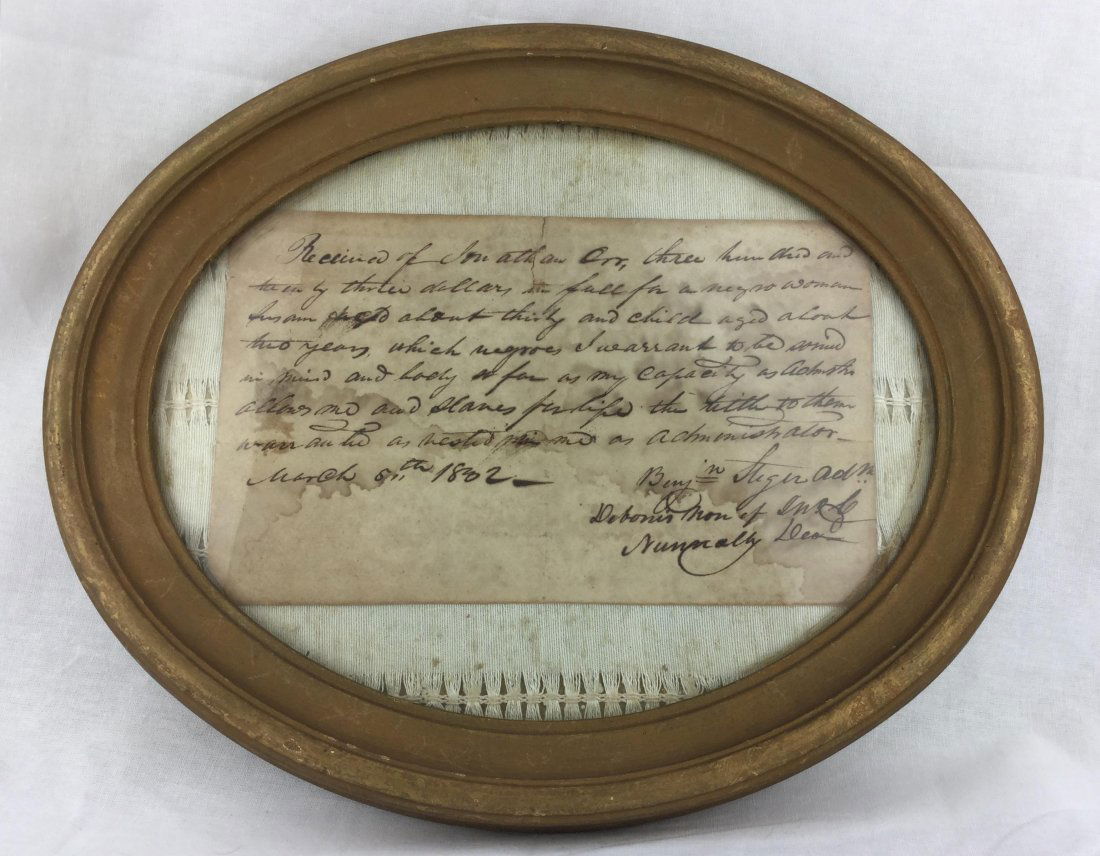 Received of Jonathan Orr, three hundred and
twenty three dollars in full for a negro woman
Susan aged about thirty and child aged about
two years, which negroes I warrant to be sound
in mind and body so far as my capacity as Admstr
allows me and slaves for life the title to them
warranted as vested in me as administrator
March 8th 1832
Benjn Steger adn.
Debonis non of
Nunnally Decd